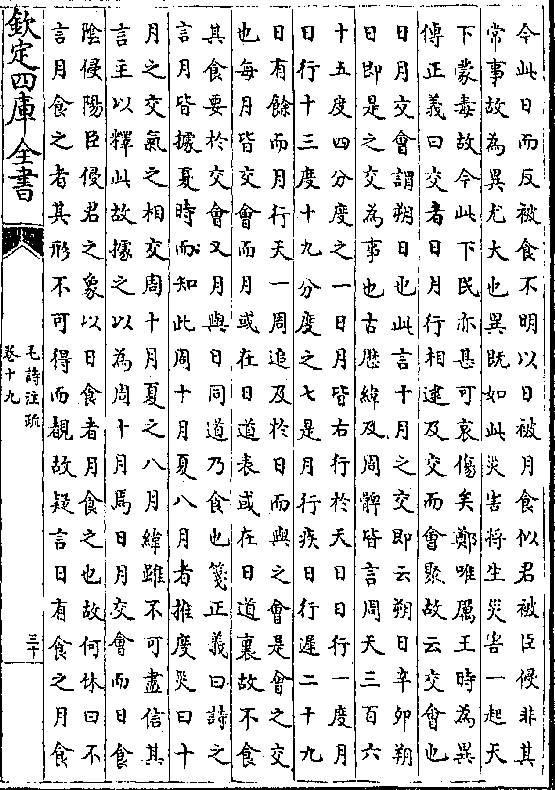 今此日而反被食不明以日被月食似君被臣侵非其
常事故為異尤大也異既如此災害將生災害一起天
下蒙毒故今此下民亦甚可哀傷矣鄭唯厲王時為異
傳正義曰交者日月行相逮及交而會聚故云交會也
日月交會謂朔日也此言十月之交即云朔日辛卯朔
日即是之交為事也古厯緯及周髀皆言周天三百六
十五度四分度之一日月皆右行於天日日行一度月
日行十三度十九分度之七是月行疾日行遲二十九
日有餘而月行天一周追及於日而與之會是會之交
也每月皆交會而月或在日道表或在日道裏故不食
其食要於交會又月與日同道乃食也箋正義曰詩之
言月皆據夏時而知此周十月夏八月者推度災曰十
月之交氣之相交周十月夏之八月緯雖不可盡信其
言主以釋此故據之以為周十月焉日月交會而日食
陰侵陽臣侵君之象以日食者月食之也故何休曰不
言月食之者其形不可得而覩故疑言日有食之月食
欽定四庫全書
毛詩注疏
卷十九
三十